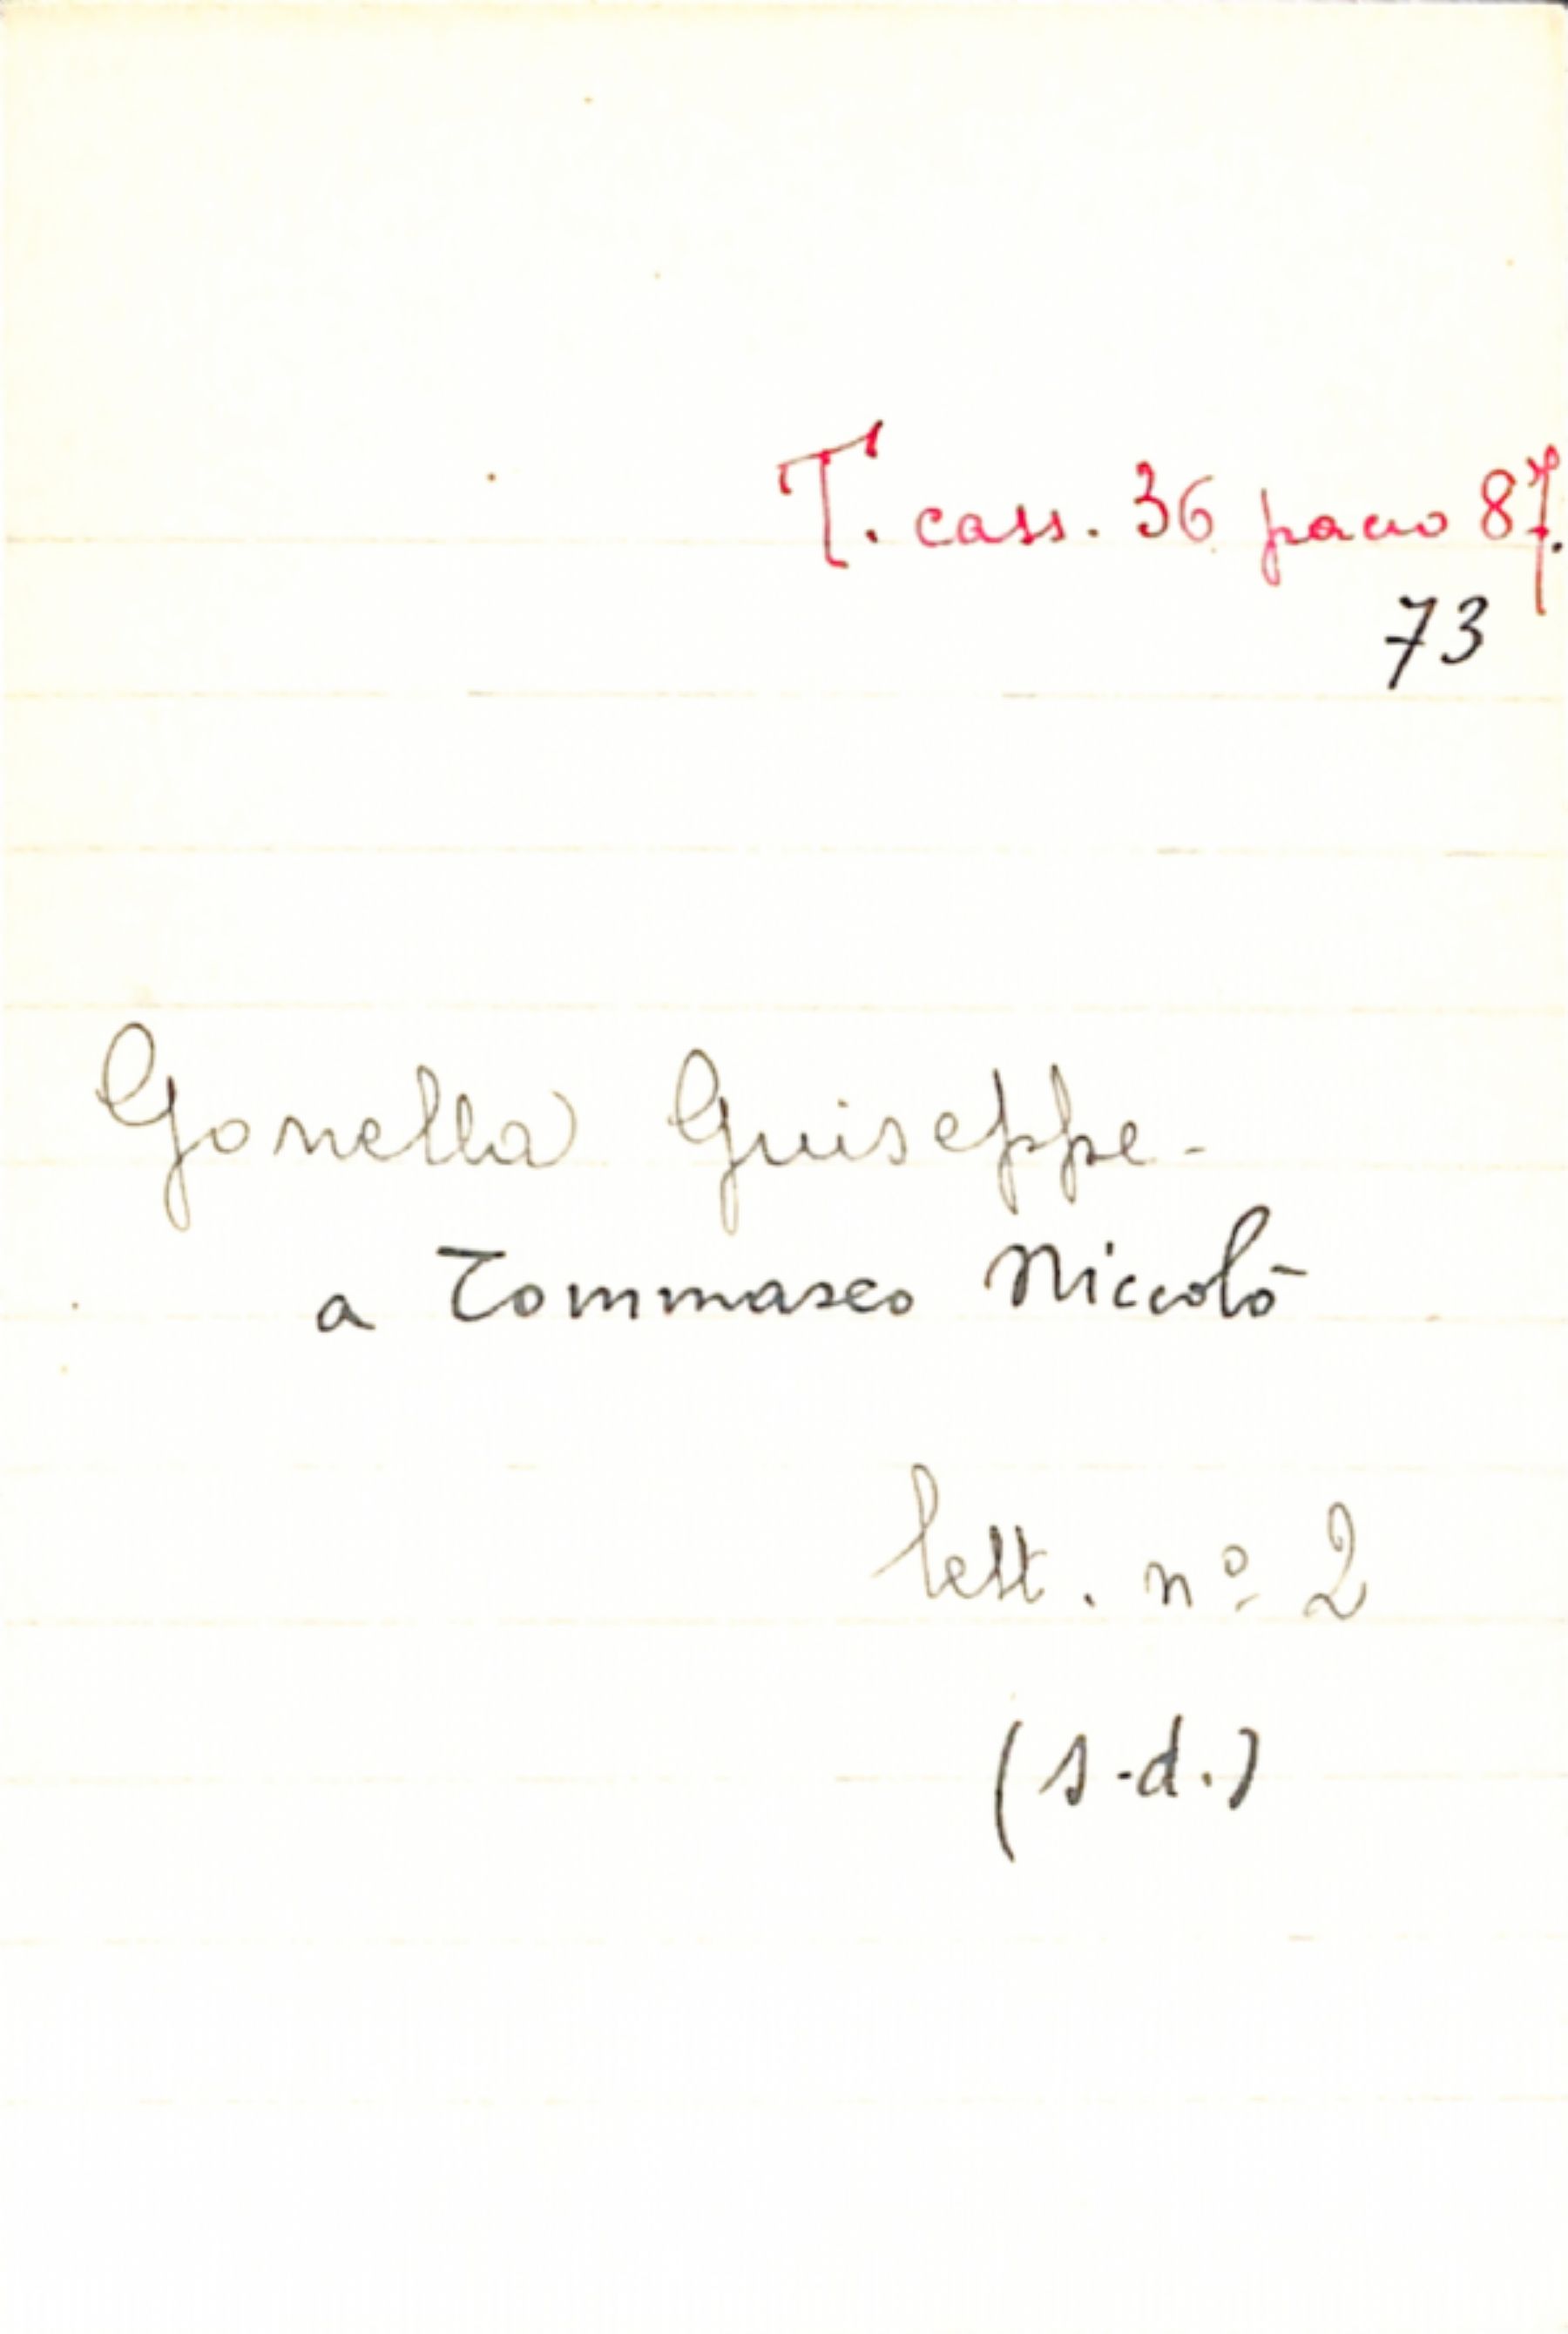 T. cass. 36 pacco 87.
73
Gonella Guiseppe -
a Tommaseo Niccolò
lett. nº 2
(s.d.)